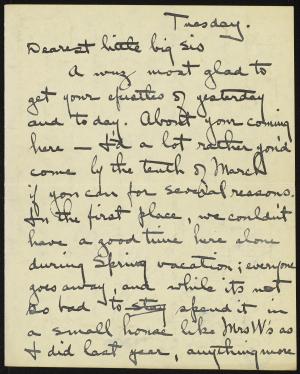 Tuesday.
Dearest little big sis
A wuz most glad to
get your epistles of yesterday
and today. About your coming
here — I'd a lot rather you'd
come by the tenth of March
if you can for several reasons.
In the first place, we couldn't
have a good time here alone
during Spring vacation; everyone
goes away, and while its not
so bad to stay spend it in
a small house like Mrs W's as
I did last year, anything more